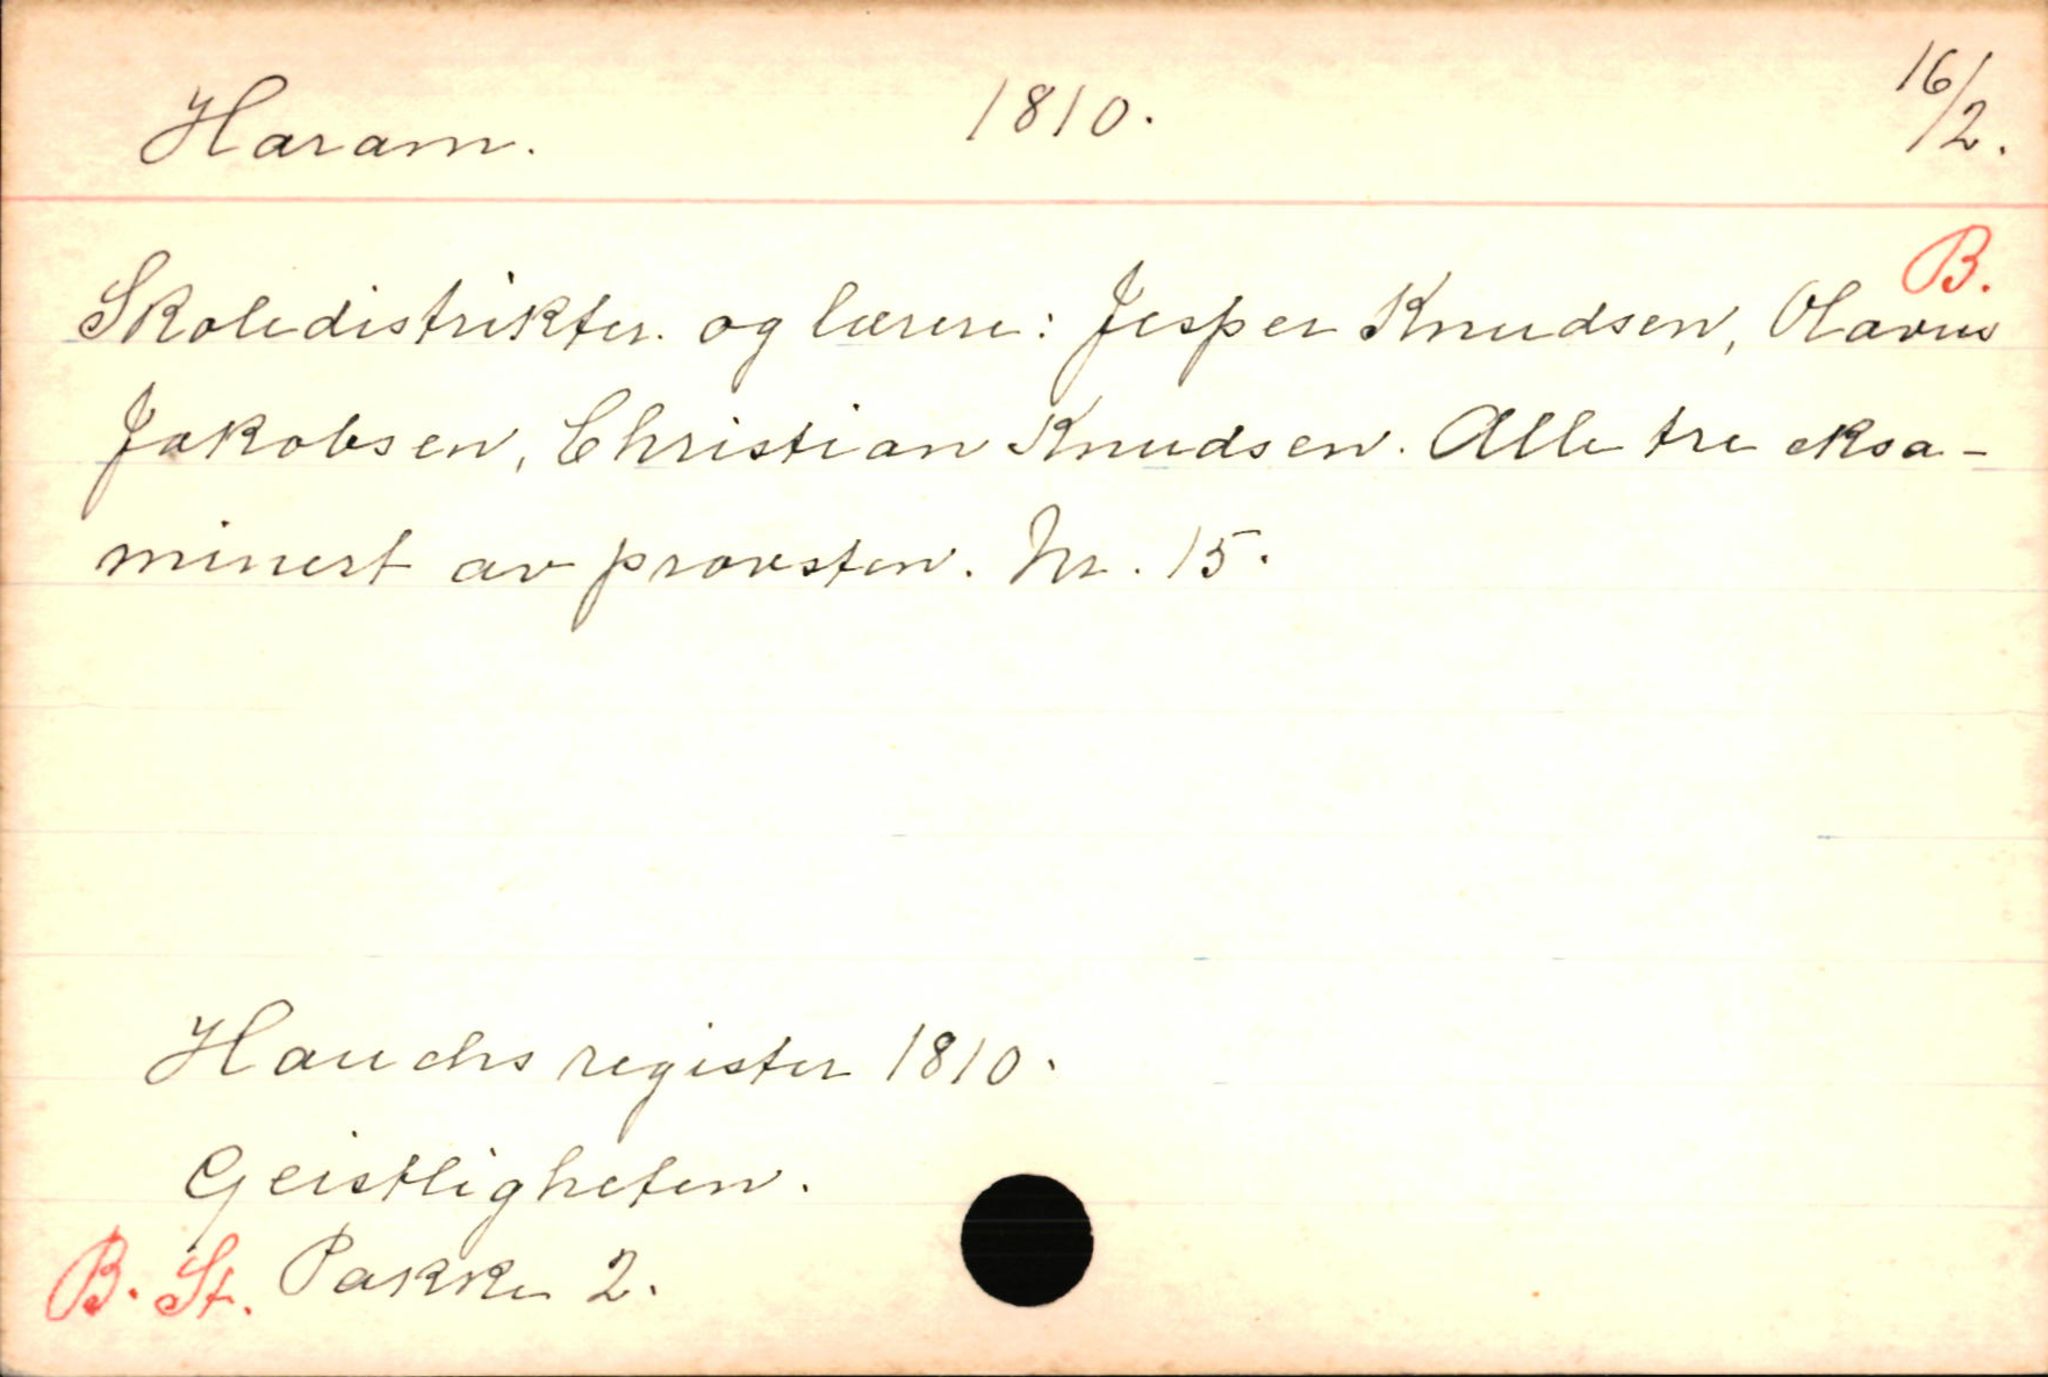 Haram. 1810. 16/2.
B.
Skoledistrikter og lærere: Jesper Knudsen, Olavus
Jakobsen, Christian Knudsen. Alle tre eksa-
minert av provsten. Nr. 15.
Hauchs register 1810.
Geistligheten.
B. St. Pakke 2.